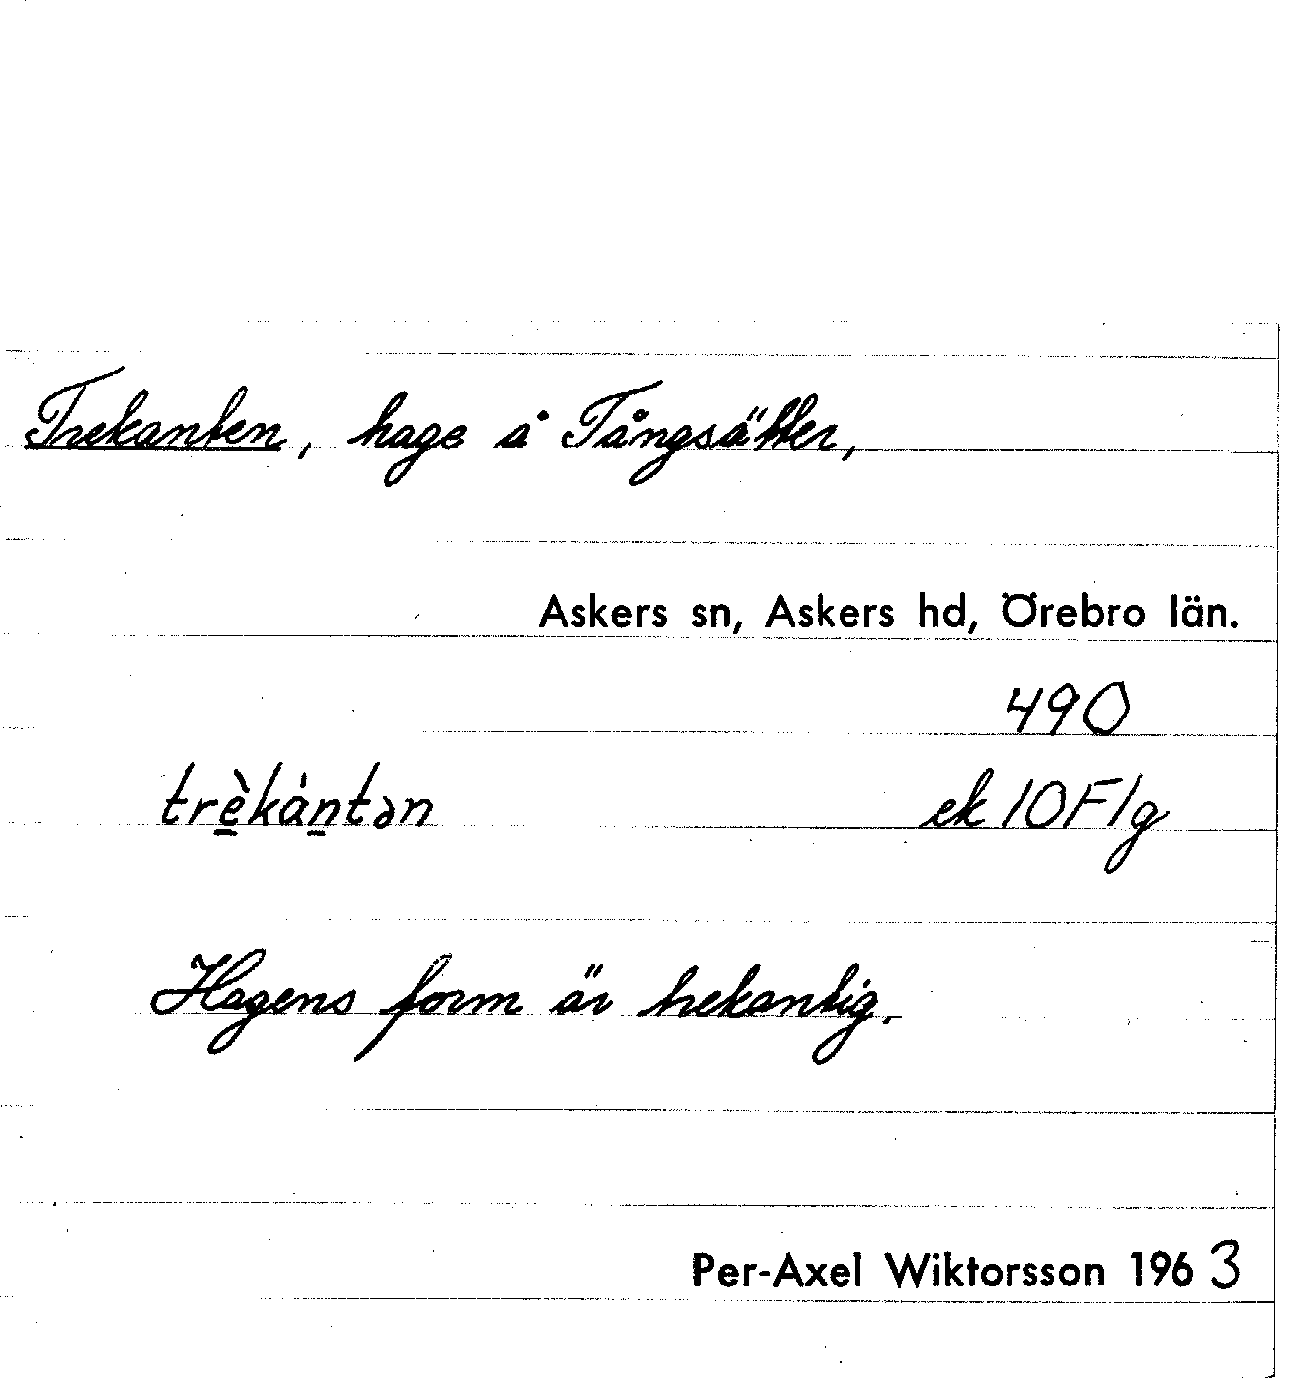 Trekanten, hage å Tångsätter,
Askers sn, Askers hd, Örebro län.
490
trè̠kán̠tən
ek 10F1g
Hagens form är trekantig.
Per-Axel Wiktorsson 1963